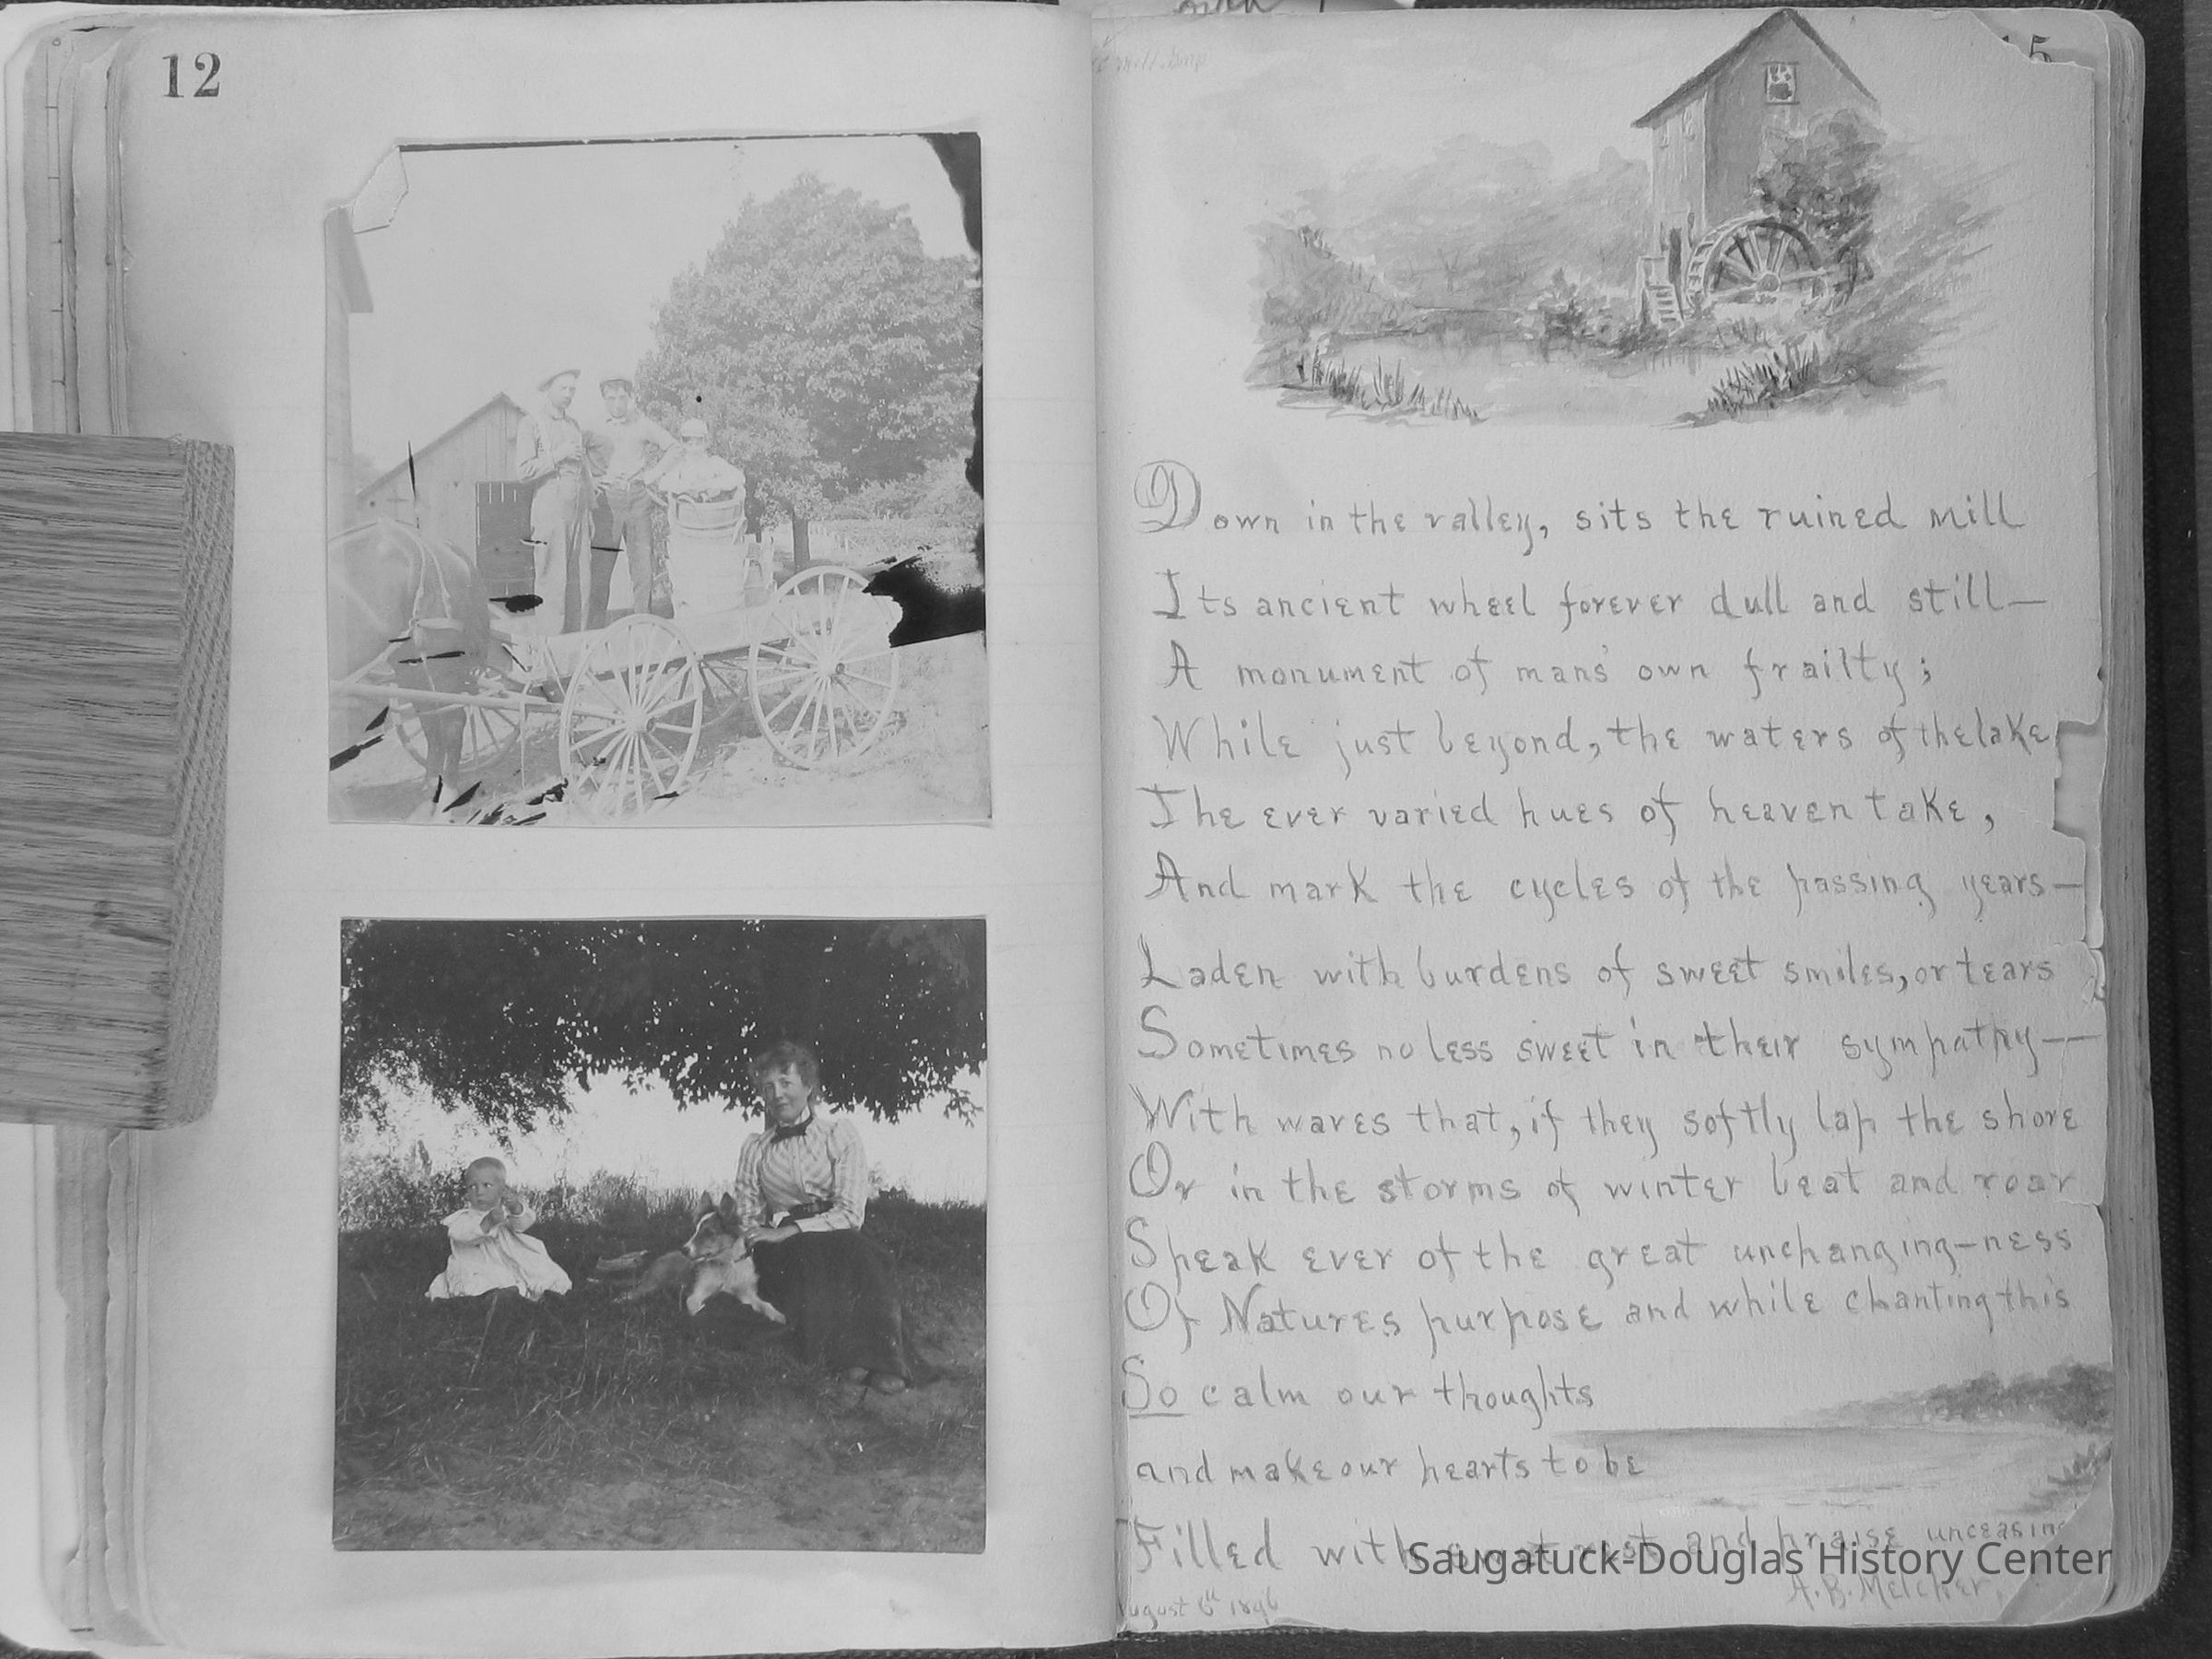 12
15
Down in the valley, sits the ruined mill
Its ancient wheel forever dull and still—
A monument of mans' own frailty;
While just beyond, the waters of the lake,
The ever varied hues of heaven take,
And mark the cycles of the passing years—
Laden with burdens of sweet smiles, or tears
Sometimes no less sweet in their sympathy—
With waves that, if they softly lap the shore
Or in the storms of winter beat and roar
Speak ever of the great unchanging-ness
Of Natures purpose and while chanting this
So calm our thoughts
and make our hearts to be
Filled with sweet rest and praise unceasing
A. B. Melcher.
August 6th 1896
Saugatuck-Douglas History Center